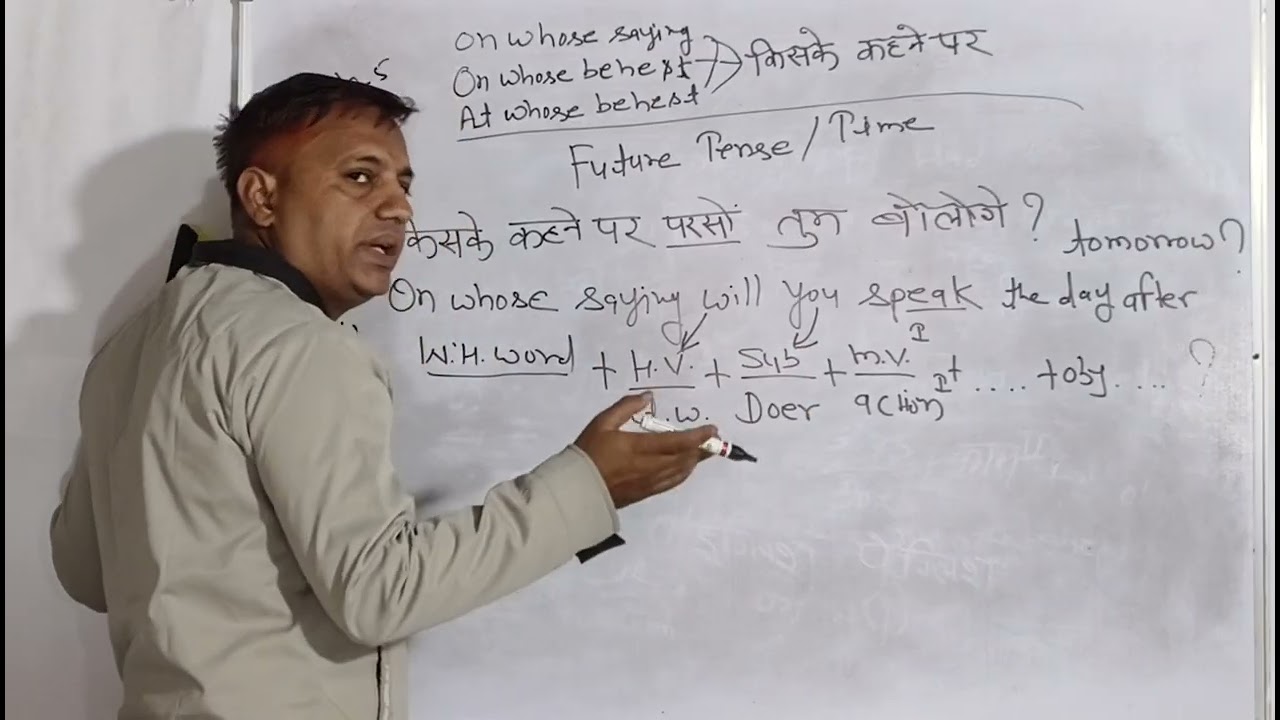 On whose saying
On whose behest
At whose behest
किसके कहने पर
Future Tense / Time
किसके कहने पर परसों तुम बोलोगे ?
On whose saying will you speak the day after
tomorrow ?
W.H. word + H.V. + Sub + M.V. I + .... + obj .... ?
H.W. Doer action I